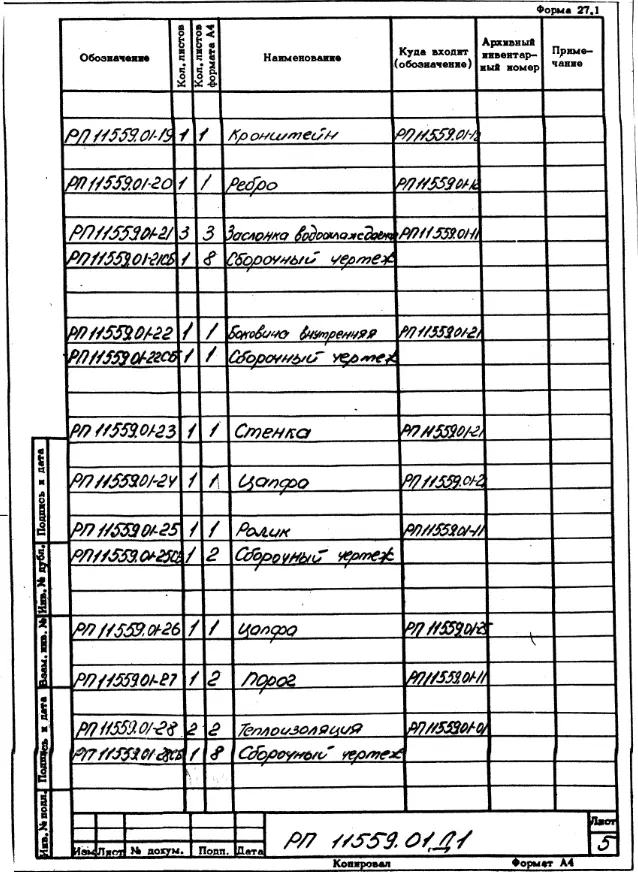 Форма 27.1
Обозначение Кол. листов Кол. листов формата А4 Наименование Куда входит (обозначение) Архивный инвентар- ный номер Приме- чание
РП 11559.01-19 1 1 Кронштейн РП 11559.01-12
РП 11559.01-20 1 1 Ребро РП 11559.01-12
РП 11559.01-21 3 3 Заслонка РП 11559.01-11
РП 11559.01-21СБ 1 8 Сборочный чертеж
РП 11559.01-22 1 1 Боковина внутренняя РП 11559.01-21
РП 11559.01-22СБ 1 1 Сборочный чертеж
РП 11559.01-23 1 1 Стенка РП 11559.01-21
РП 11559.01-24 1 1 Цапфа РП 11559.01-2
РП 11559.01-25 1 1 Ролик РП 11559.01-11
РП 11559.01-25СБ 1 2 Сборочный чертеж
РП 11559.01-26 1 1 Цапфа РП 11559.01-25
РП 11559.01-27 1 2 Порог РП 11559.01-11
РП 11559.01-28 2 2 Теплоизоляция РП 11559.01-01
РП 11559.01-28СБ 1 8 Сборочный чертеж
Инв. № подл. Подпись и дата Взам. инв. № Инв. № дубл. Подпись и дата
Изм Лист № докум. Подп. Дата
РП 11559.01 Д1
Лист
5
Копировал Формат А4